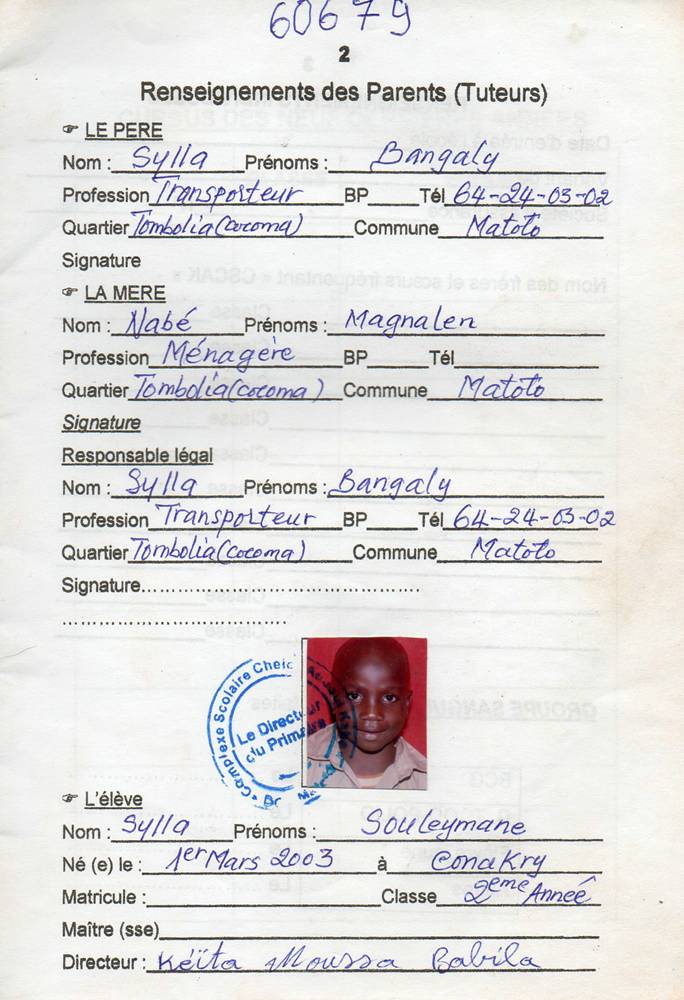 60679
2
Renseignements des Parents (Tuteurs)
☞ LE PERE
Nom : Sylla Prénoms : Bangaly
Profession Transporteur BP Tél 64-24-03-02
Quartier Tombolia (cocoma) Commune Matoto
Signature
☞ LA MERE
Nom : Nabé Prénoms : Magnalen
Profession Ménagère BP Tél
Quartier Tombolia (cocoma) Commune Matoto
Signature
Responsable légal
Nom : Sylla Prénoms : Bangaly
Profession Transporteur BP Tél 64-24-03-02
Quartier Tombolia (cocoma) Commune Matoto
Signature
Complexe Scolaire Cheic
Le Directeur
du Primaire
☞ L'élève
Nom : Sylla Prénoms : Souleymane
Né (e) le : 1er Mars 2003 à Conakry
Matricule : Classe 2eme Anneê
Maître (sse)
Directeur : Kéïta Moussa Babila